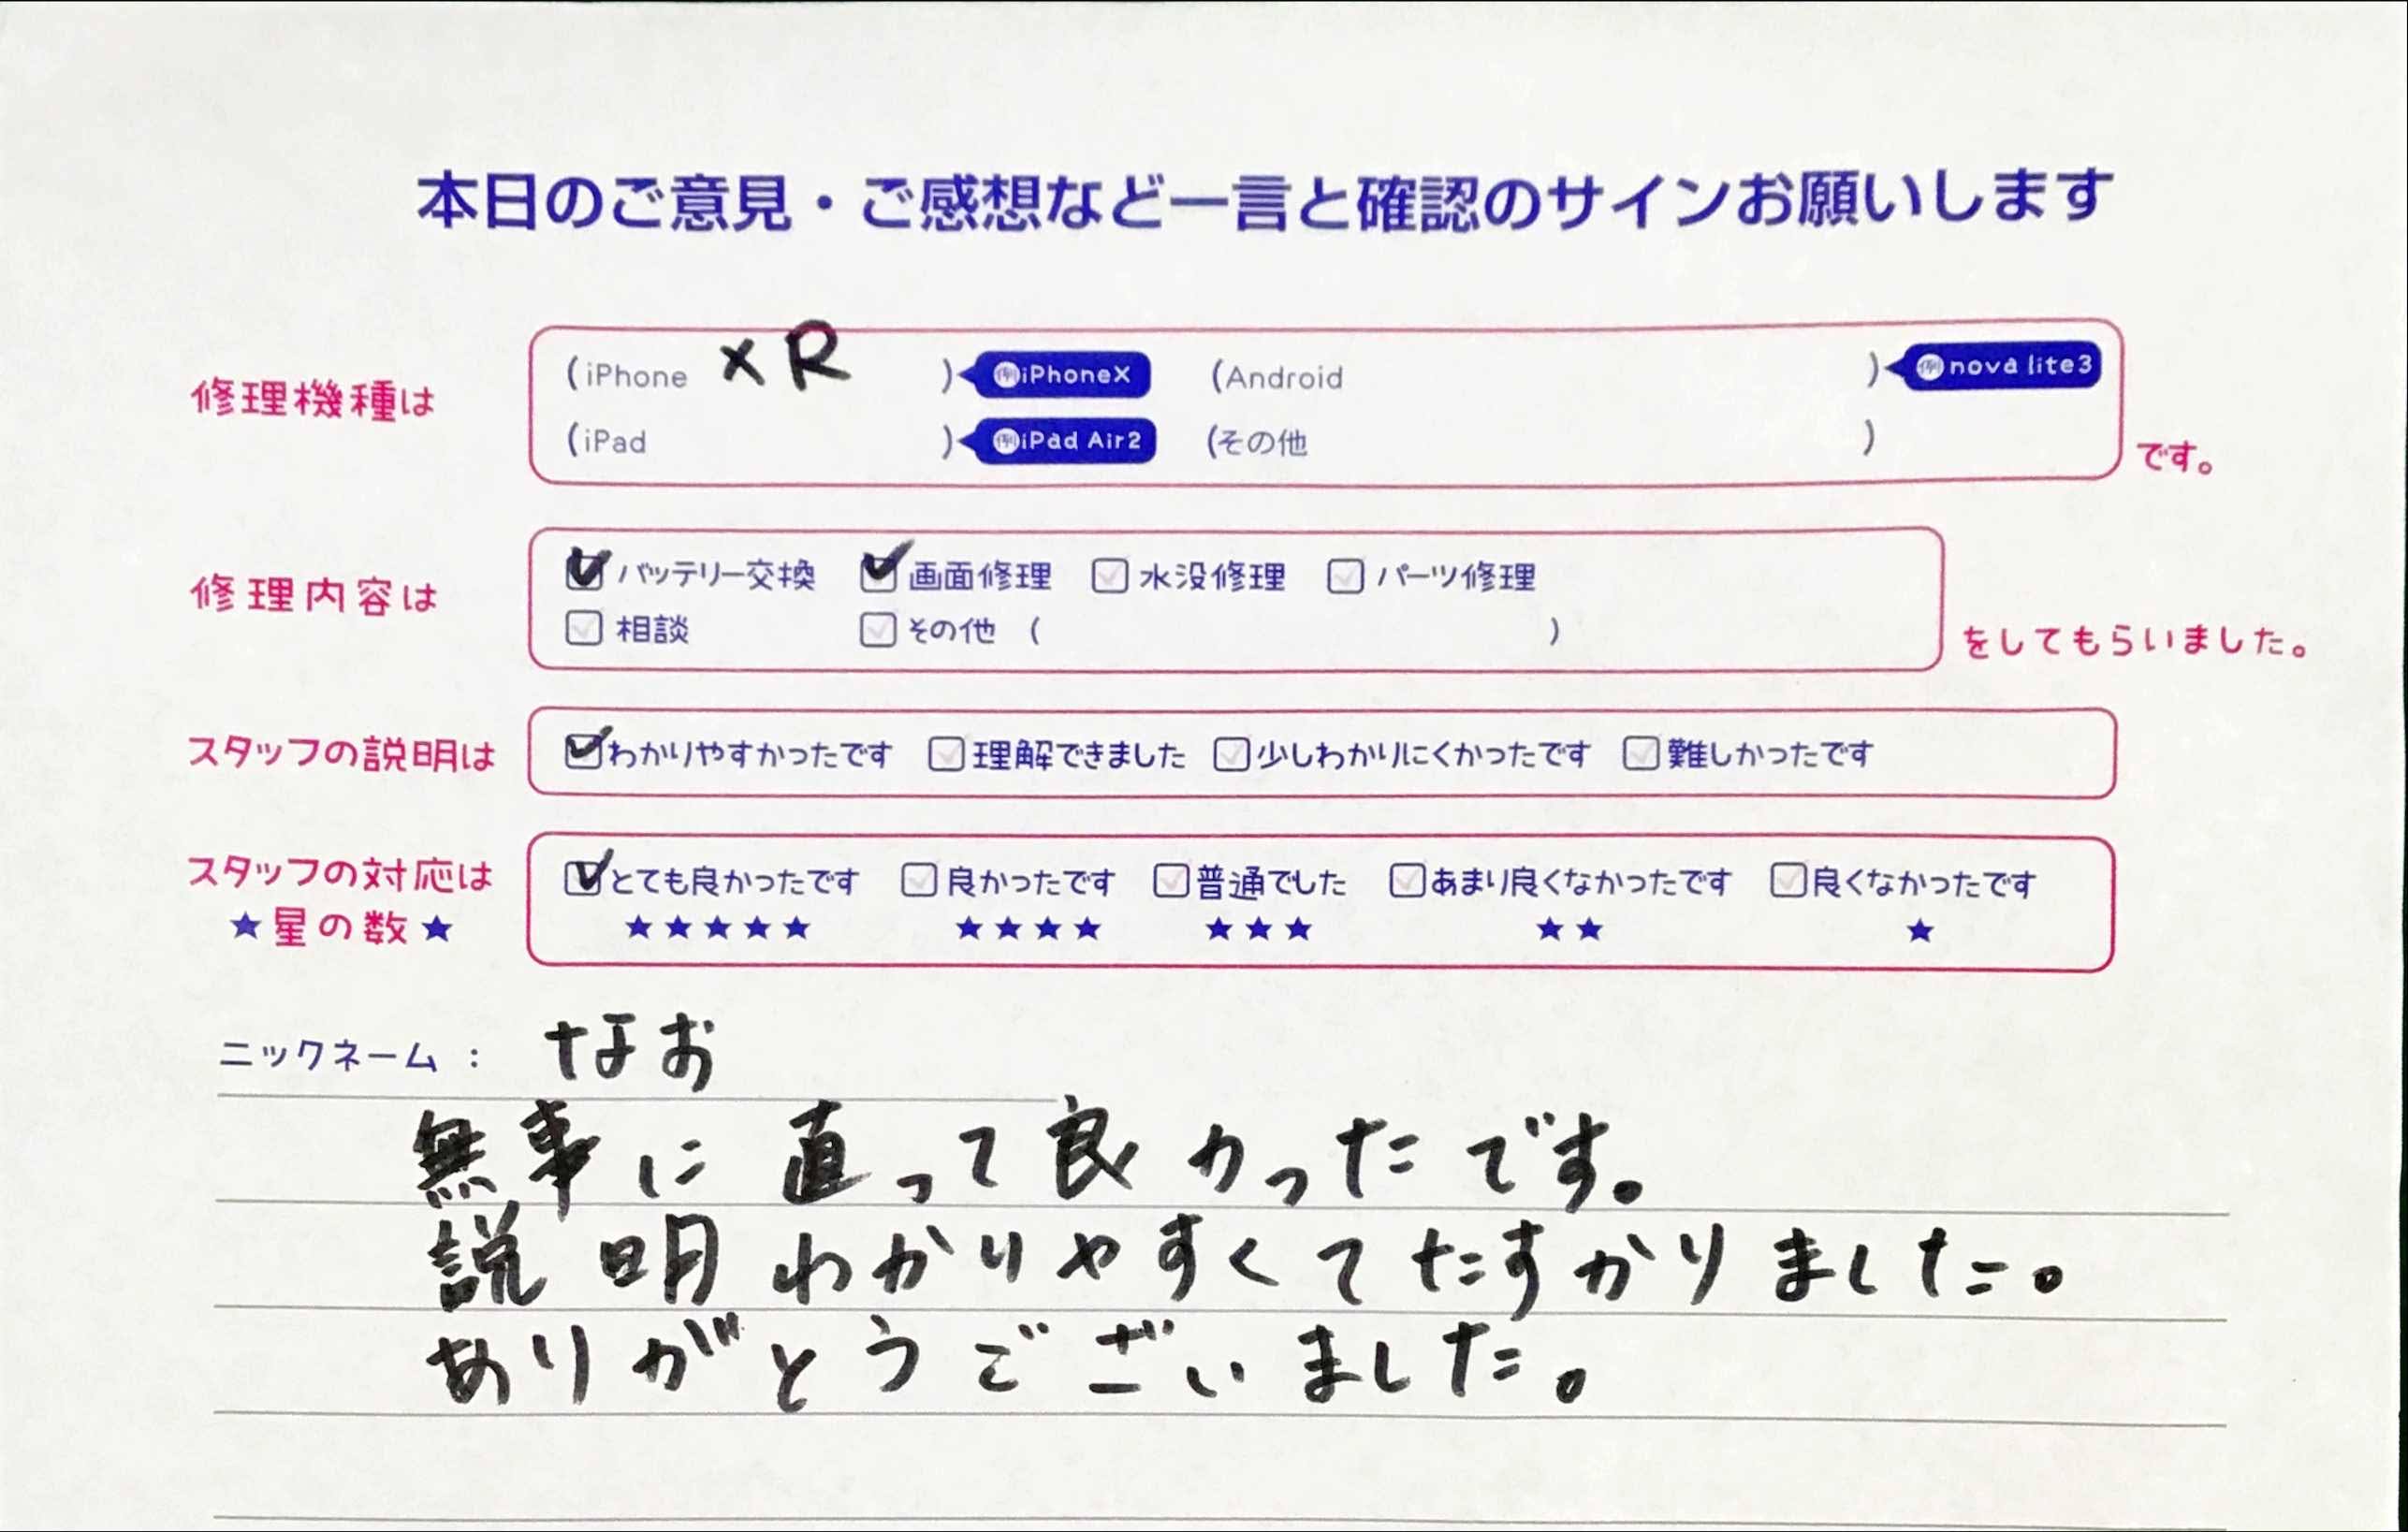 本日のご意見・ご感想など一言と確認のサインお願いします
修理機種は (iPhone XR ) 例iPhoneX (Android ) 例nova lite3
(iPad ) 例iPad Air2 (その他 ) です。
修理内容は ☑バッテリー交換 ☑画面修理 ☐水没修理 ☐パーツ修理
☐相談 ☐その他 ( ) をしてもらいました。
スタッフの説明は ☑わかりやすかったです ☐理解できました ☐少しわかりにくかったです ☐難しかったです
スタッフの対応は ☑とても良かったです ☐良かったです ☐普通でした ☐あまり良くなかったです ☐良くなかったです
★星の数★ ★★★★★ ★★★★ ★★★ ★★ ★
ニックネーム : なお
無事に直って良かったです。
説明わかりやすくてたすかりました。
ありがとうございました。